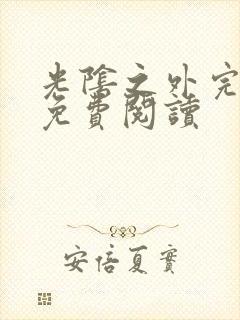 光陰之外完
免費閱讀
安倍夏實